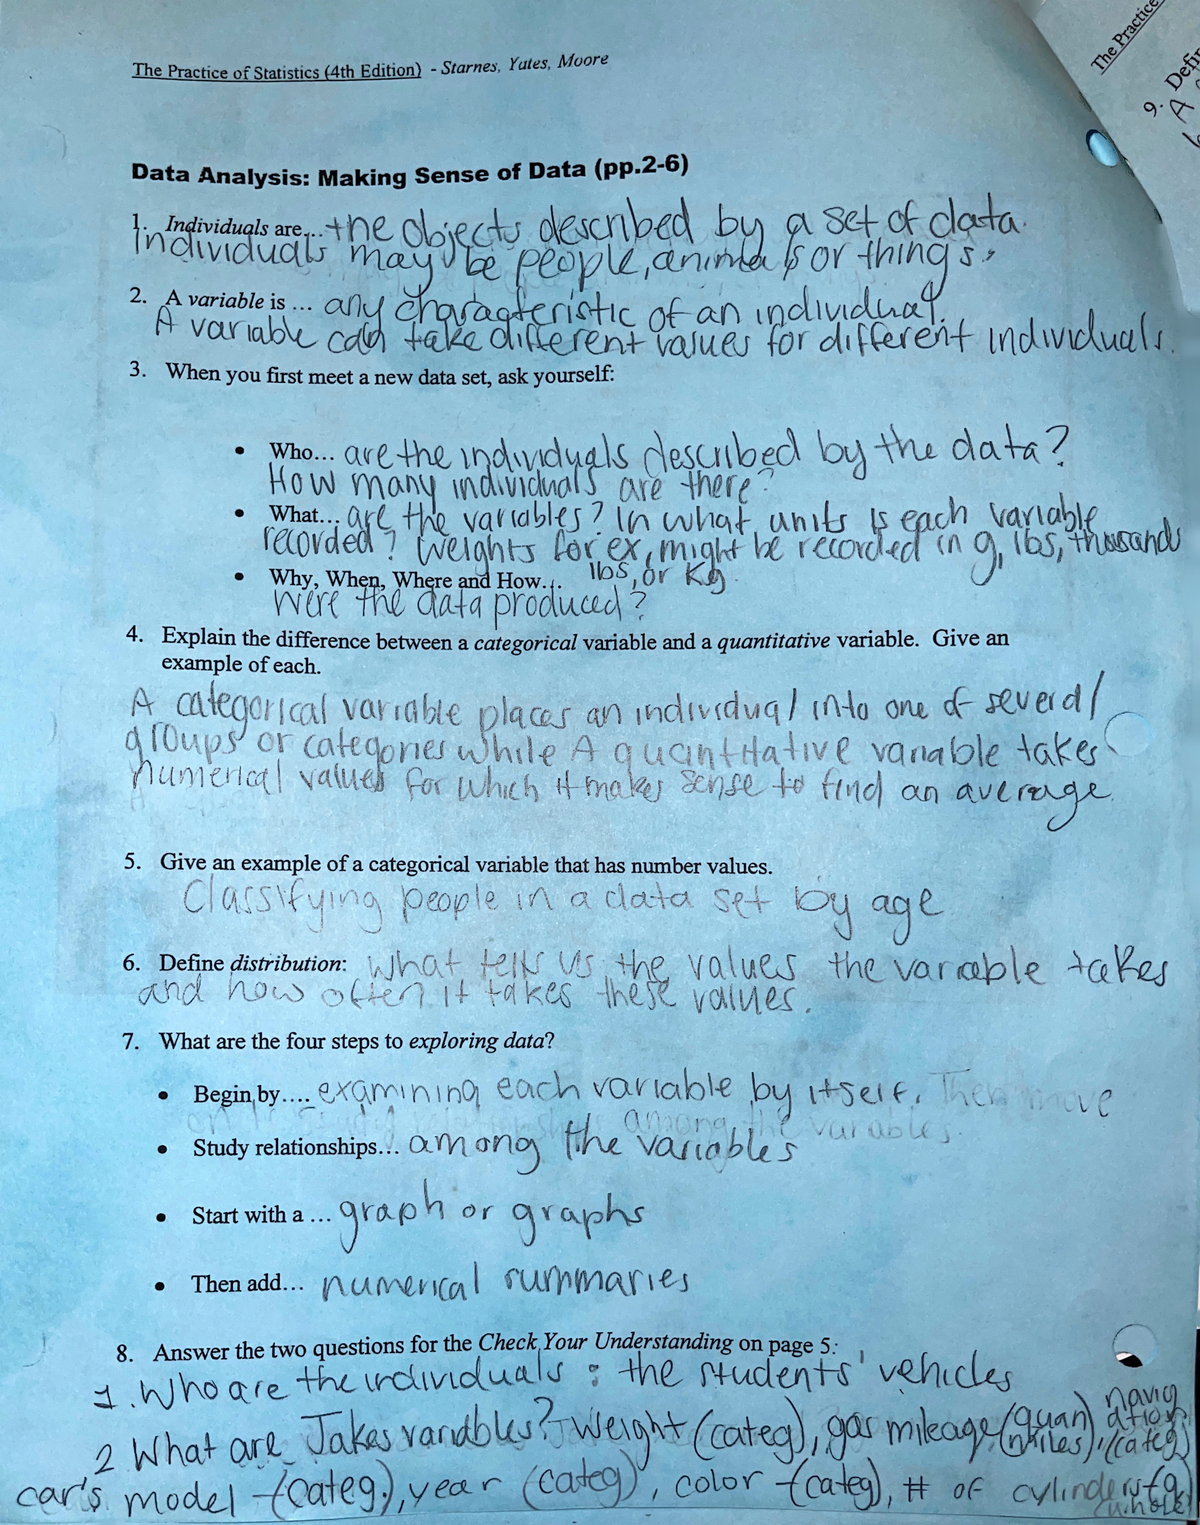 The Practice of Statistics (4th Edition) - Starnes, Yates, Moore
The Practice
9. Defin
A
Data Analysis: Making Sense of Data (pp.2-6)
1. Individuals are... the objects described by a set of data.
Individuals may be people, animals or things.
2. A variable is ... any characteristic of an individual.
A variable can take different values for different individuals.
3. When you first meet a new data set, ask yourself:
• Who... are the individuals described by the data?
How many individuals are there?
• What... are the variables? In what units is each variable
recorded? Weights for ex, might be recorded in g, lbs, thousands
lbs, or Kg.
• Why, When, Where and How...
Were the data produced?
4. Explain the difference between a categorical variable and a quantitative variable. Give an
example of each.
A categorical variable places an individual into one of several
groups or categories while A quantitative variable takes
numerical values for which it makes sense to find an average.
5. Give an example of a categorical variable that has number values.
Classifying people in a data set by age
6. Define distribution: What tells us the values the variable takes
and how often it takes these values.
7. What are the four steps to exploring data?
• Begin by.... examining each variable by itself. Then move
among the variables.
• Study relationships... among the variables
• Start with a ... graph or graphs
• Then add... numerical summaries
8. Answer the two questions for the Check Your Understanding on page 5:
1. Who are the individuals: the students' vehicles
2 What are Jakes variables? Weight (categ), gas mileage (quan) (miles), navigation (categ)
car's model (categ.), year (categ), color (categ), # of cylinders (q